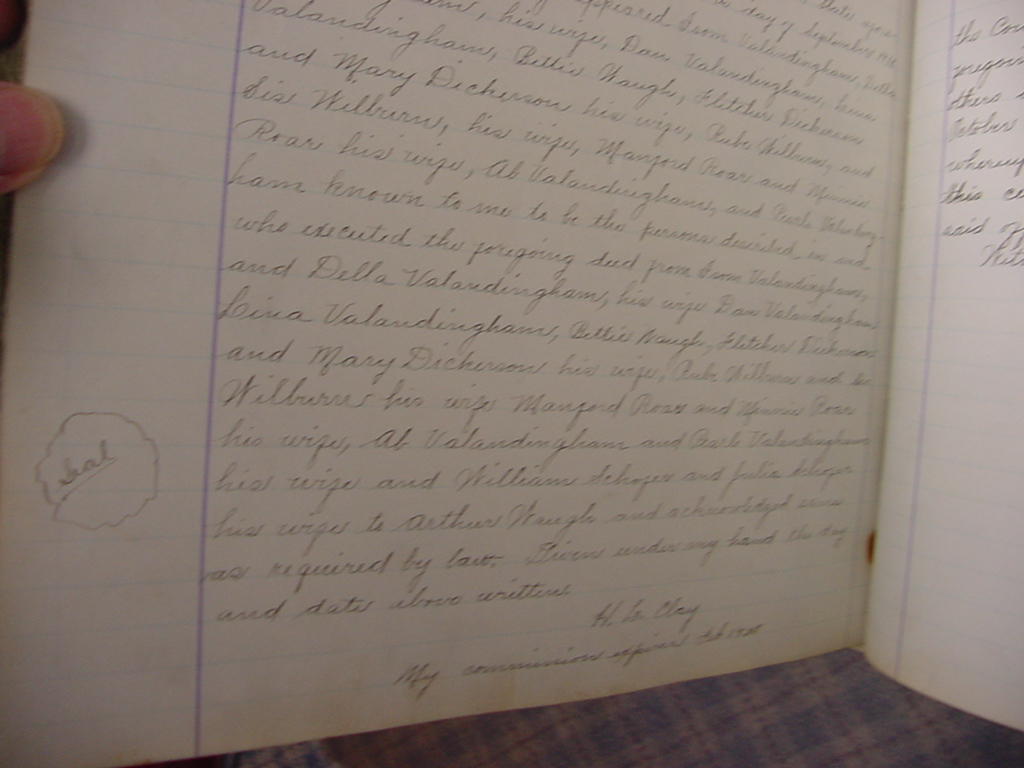 day of September
appeared Irom Valandingham, Della
Valandingham, his wife, Dan Valandingham, Lina
Valandingham, Bettie Waugh, Fletcher Dickerson
and Mary Dickerson his wife, Rube Wilburn, and
Sis Wilburn, his wife, Manford Roar and Minnie
Roar his wife, Ab Valandingham, and Pearl Valanding-
ham known to me to be the persons described in and
who executed the foregoing deed from Irom Valandingham,
and Della Valandingham, his wife Dan Valandingham
Lina Valandingham, Bettie Waugh, Fletcher Dickerson
and Mary Dickerson his wife, Rube Wilburn and Sis
Wilburn his wife Manford Roar and Minnie Roar
his wife, Ab Valandingham and Pearl Valandingham
his wife and William and Julia
his wife to Arthur Waugh and acknowledged same
as required by law. Given under my hand the day
and date above written
H. Clay
My commission expires Feb
Seal
the
foregoing
others
October
whereup
this ce
said of